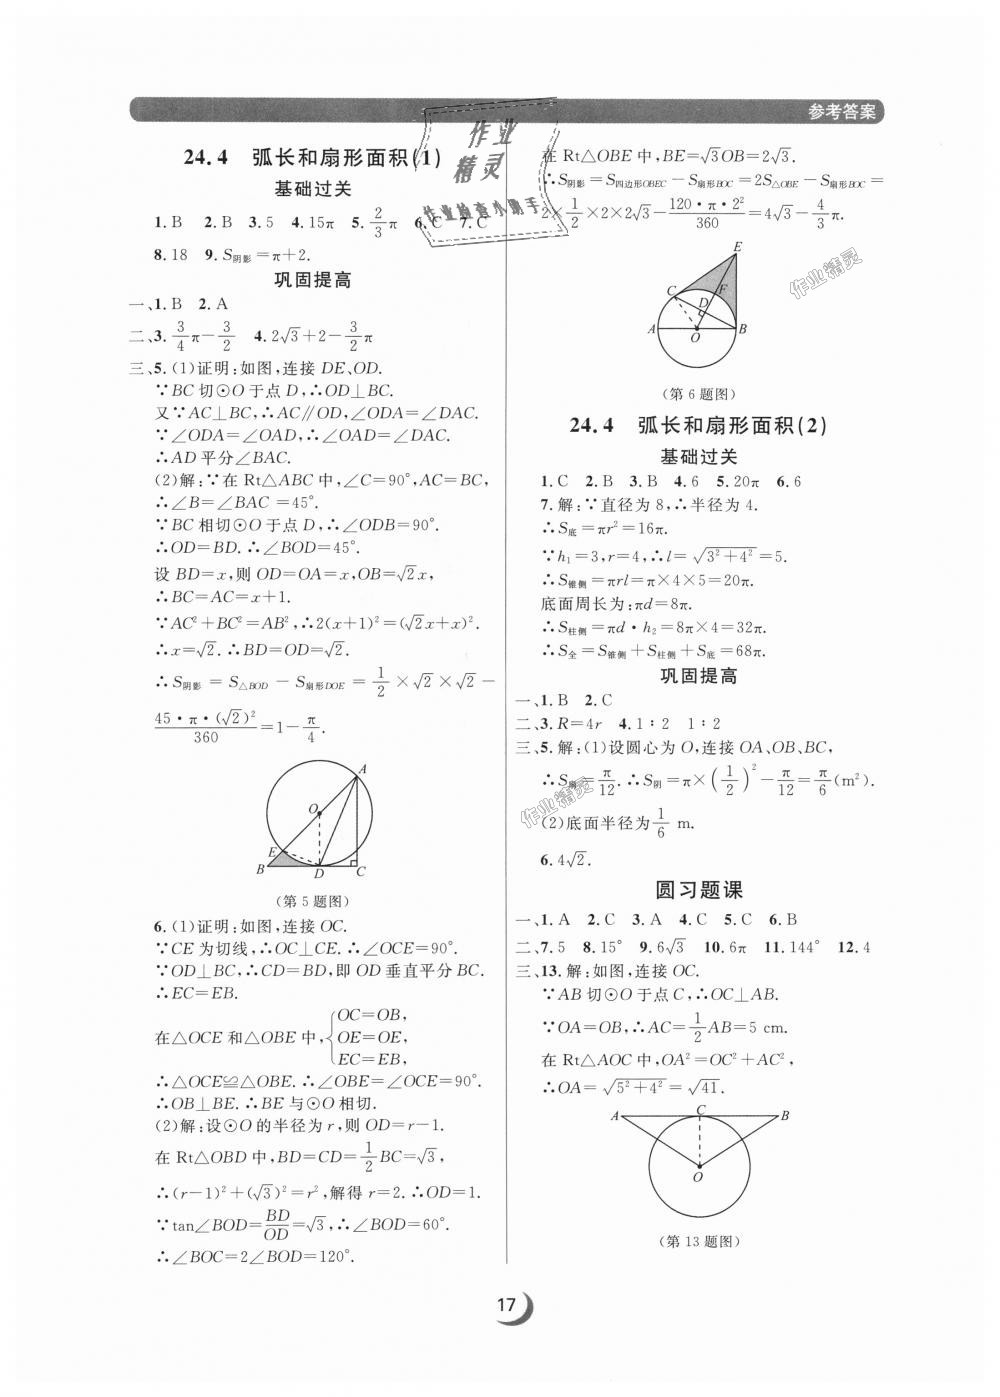 参考答案
24.4 弧长和扇形面积(1)
基础过关
1.B 2.B 3.5 4.15π 5.2/3π 6.C 7.C
8.18 9.S阴影=π+2.
巩固提高
一、1.B 2.A
二、3.3/4π-3/2 4.2√3+2-3/2π
三、5.(1)证明:如图,连接 DE、OD.
∵BC切⊙O于点D,∴OD⊥BC.
又∵AC⊥BC,∴AC∥OD,∠ODA=∠DAC.
∵∠ODA=∠OAD,∴∠OAD=∠DAC.
∴AD平分∠BAC.
(2)解:∵在Rt△ABC中,∠C=90°,AC=BC,
∴∠B=∠BAC=45°.
∵BC相切⊙O于点D,∴∠ODB=90°.
∴OD=BD.∴∠BOD=45°.
设BD=x,则OD=OA=x,OB=√2x,
∴BC=AC=x+1.
∵AC²+BC²=AB²,∴2(x+1)²=(√2x+x)².
∴x=√2.∴BD=OD=√2.
∴S阴影=S△BOD-S扇形DOE=1/2×√2×√2-
45·π·(√2)²/360=1-π/4.
A
O
E
B
D
C
(第5题图)
6.(1)证明:如图,连接OC.
∵CE为切线,∴OC⊥CE.∴∠OCE=90°.
∵OD⊥BC,∴CD=BD,即OD垂直平分BC.
∴EC=EB.
在△OCE和△OBE中,{OC=OB,
OE=OE,
EC=EB,
∴△OCE≌△OBE.∴∠OBE=∠OCE=90°.
∴OB⊥BE.∴BE与⊙O相切.
(2)解:设⊙O的半径为r,则OD=r-1.
在Rt△OBD中,BD=CD=1/2BC=√3,
∴(r-1)²+(√3)²=r²,解得r=2.∴OD=1.
∵tan∠BOD=BD/OD=√3,∴∠BOD=60°.
∴∠BOC=2∠BOD=120°.
在Rt△OBE中,BE=√3OB=2√3.
∴S阴影=S四边形OBEC-S扇形BOC=2S△OBE-S扇形BOC=
2×1/2×2×2√3-120·π·2²/360=4√3-4/3π.
E
C
F
D
A
O
B
(第6题图)
24.4 弧长和扇形面积(2)
基础过关
1.C 2.B 3.B 4.6 5.20π 6.6
7.解:∵直径为8,∴半径为4.
∴S底=πr²=16π.
∵h₁=3,r=4,∴l=√(3²+4²)=5.
∴S锥侧=πrl=π×4×5=20π.
底面周长为:πd=8π.
∴S柱侧=πd·h₂=8π×4=32π.
∴S全=S锥侧+S柱侧+S底=68π.
巩固提高
一、1.B 2.C
二、3.R=4r 4.1∶2 1∶2
三、5.解:(1)设圆心为O,连接OA、OB、BC,
∴S扇=π/12.∴S阴=π×(1/2)²-π/12=π/6(m²).
(2)底面半径为1/6 m.
6.4√2.
圆习题课
一、1.A 2.C 3.A 4.C 5.C 6.B
二、7.5 8.15° 9.6√3 10.6π 11.144° 12.4
三、13.解:如图,连接OC.
∵AB切⊙O于点C,∴OC⊥AB.
∵OA=OB,∴AC=1/2AB=5 cm.
在Rt△AOC中,OA²=OC²+AC²,
∴OA=√(5²+4²)=√41.
A
C
B
O
(第13题图)
17
作业
精灵
作业检查小助手
作业精灵
作业精灵